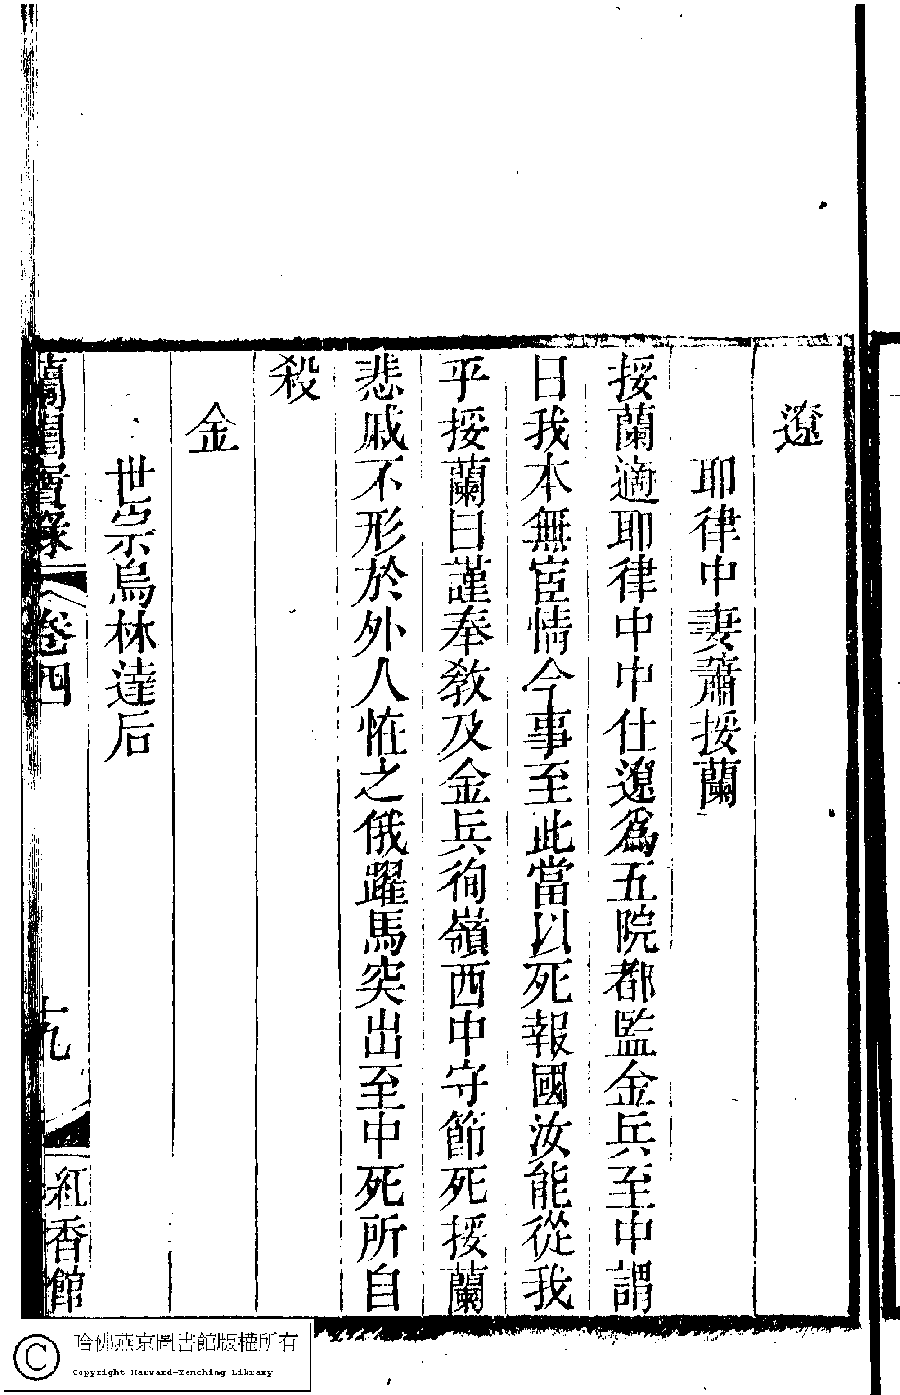 遼
耶律中妻蕭挼蘭
挼蘭適耶律中中仕遼爲五院都監金兵至中謂
曰我本無宦情今事至此當以死報國汝能從我
乎挼蘭曰謹奉敎及金兵徇嶺西中守節死挼蘭
悲戚不形於外人恠之俄躍馬突出至中死所自
殺
金
世宗烏林達后
蘭閨寶錄 卷四 十九 紅香館
哈佛燕京圖書館版權所有
Copyright Harvard-Yenching Library